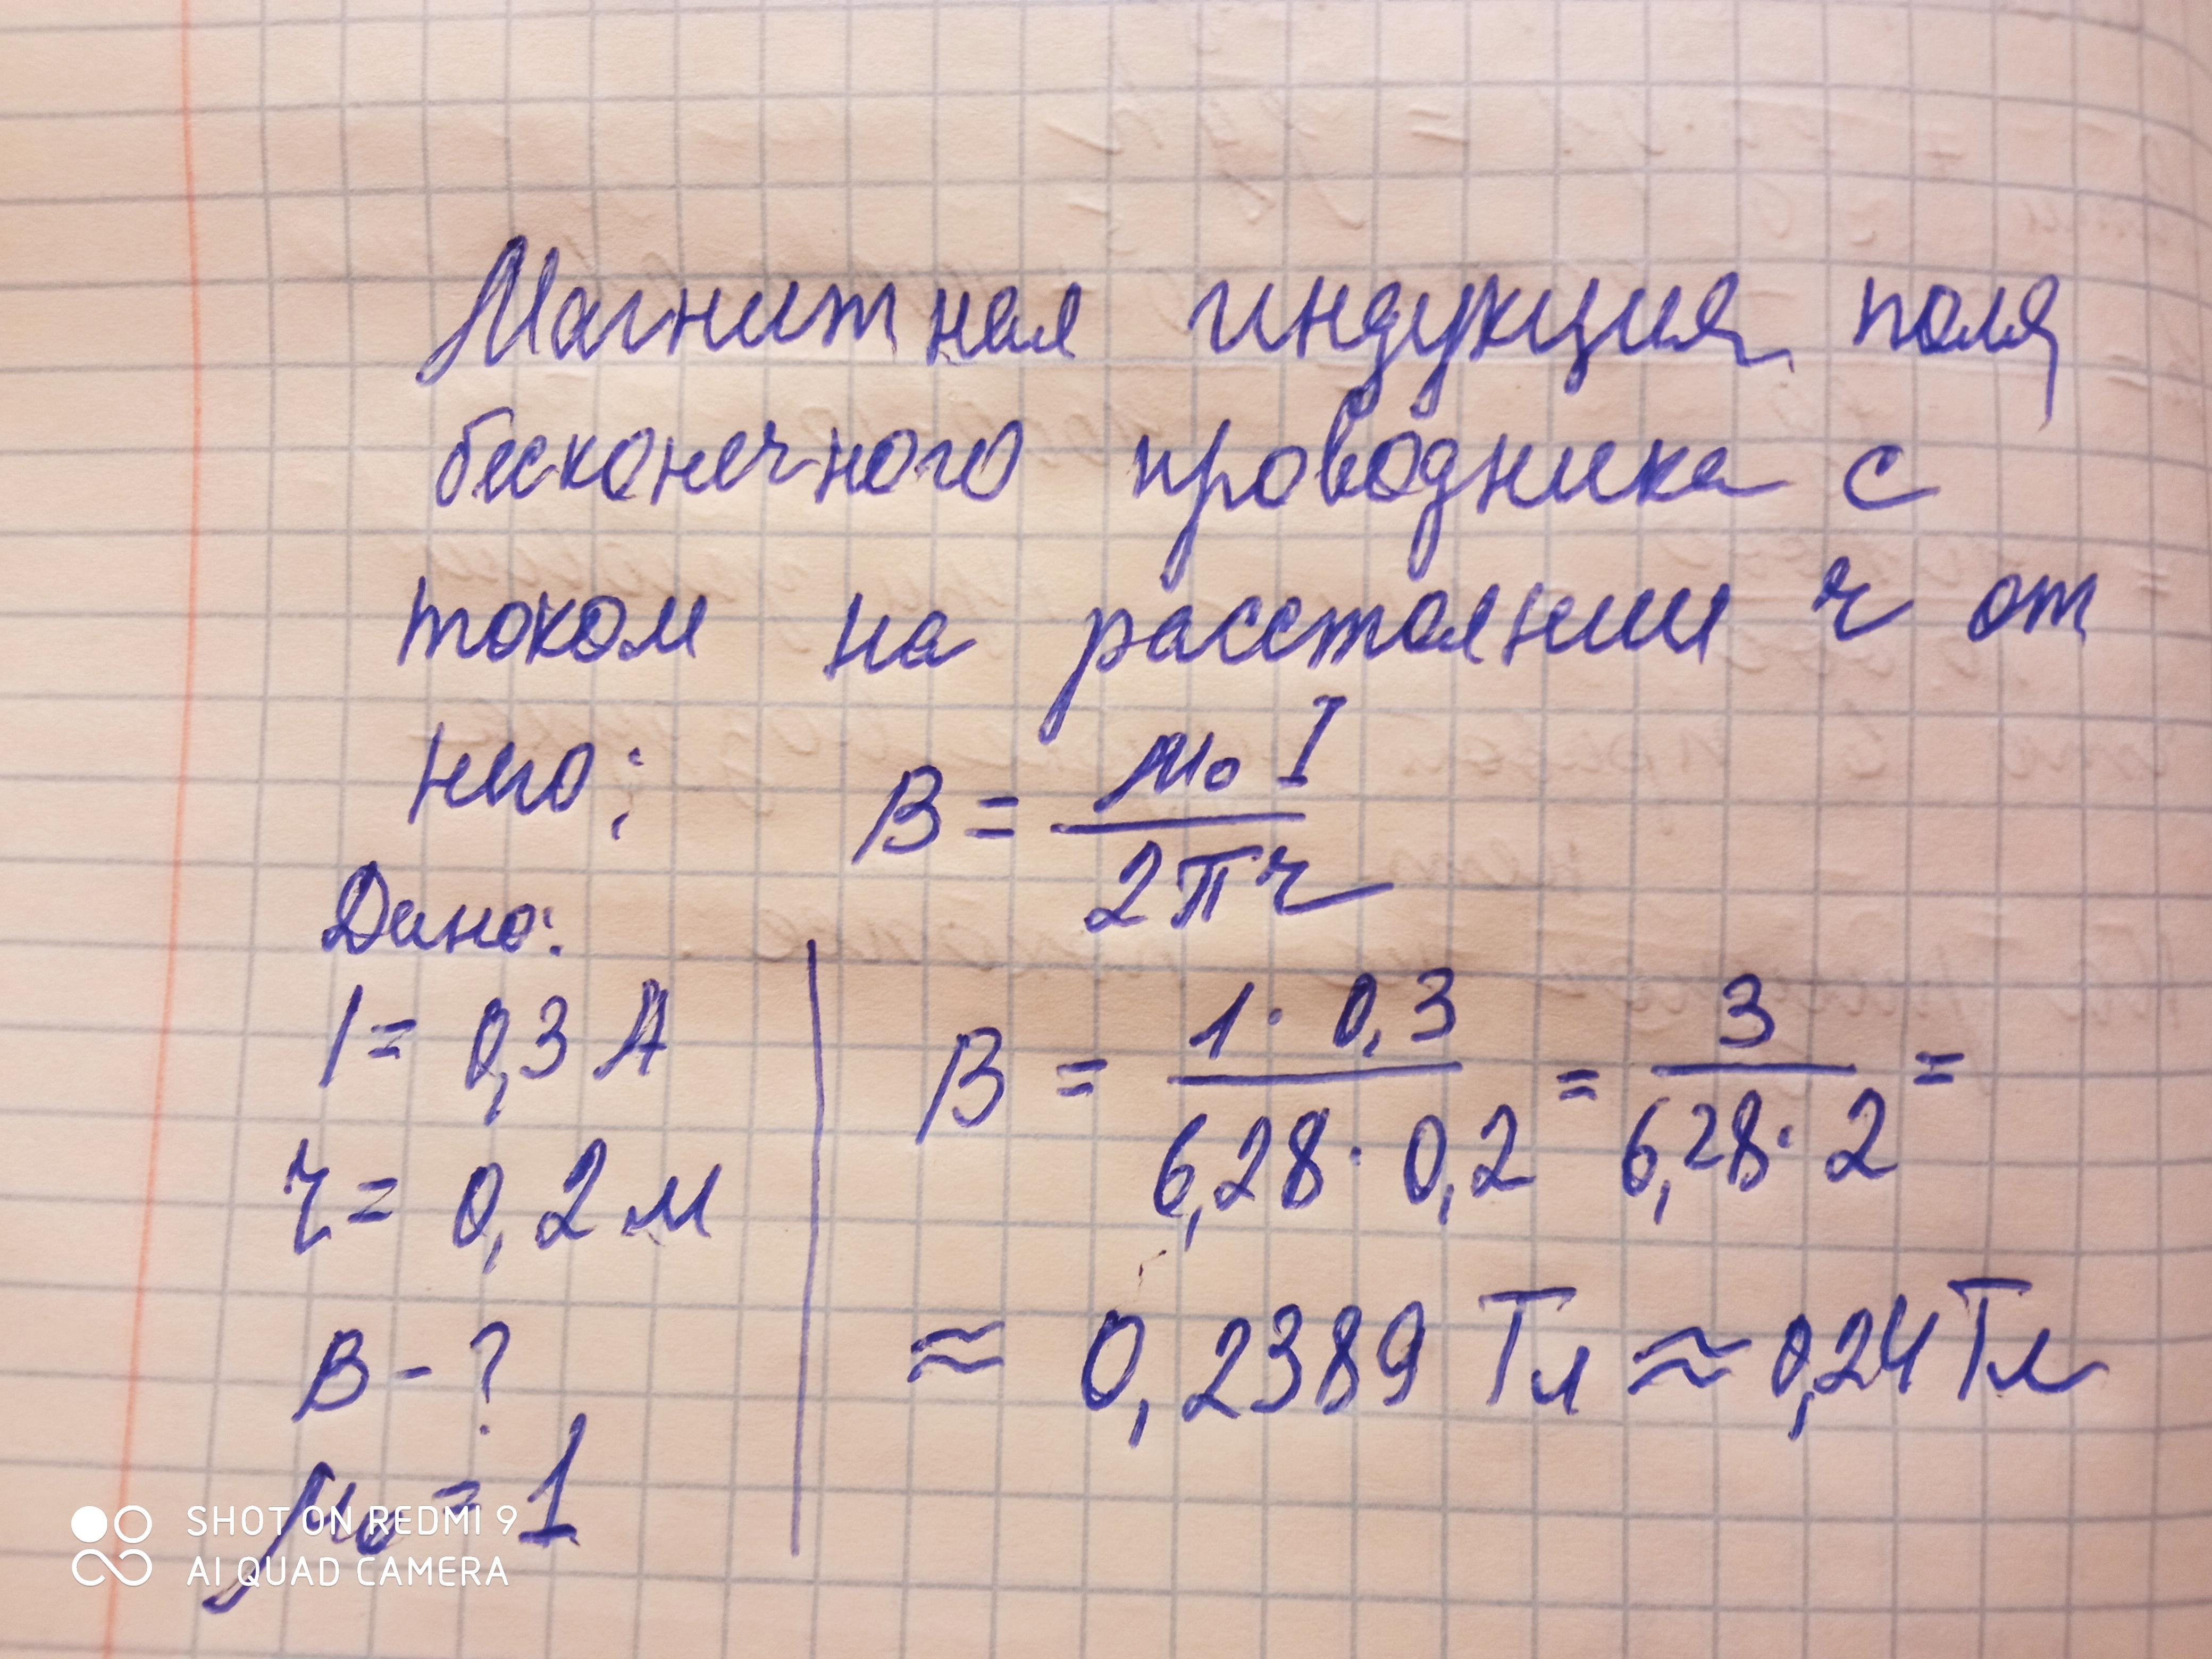 Магнитная индукция поля
бесконечного проводника с
током на расстоянии r от
него: B = μ₀ I / 2πr
Дано:
I = 0,3 А
r = 0,2 м
B - ?
μ₀ = 1
B = 1 · 0,3 / 6,28 · 0,2 = 3 / 6,28 · 2 =
≈ 0,2389 Тл ≈ 0,24 Тл
SHOT ON REDMI 9
AI QUAD CAMERA